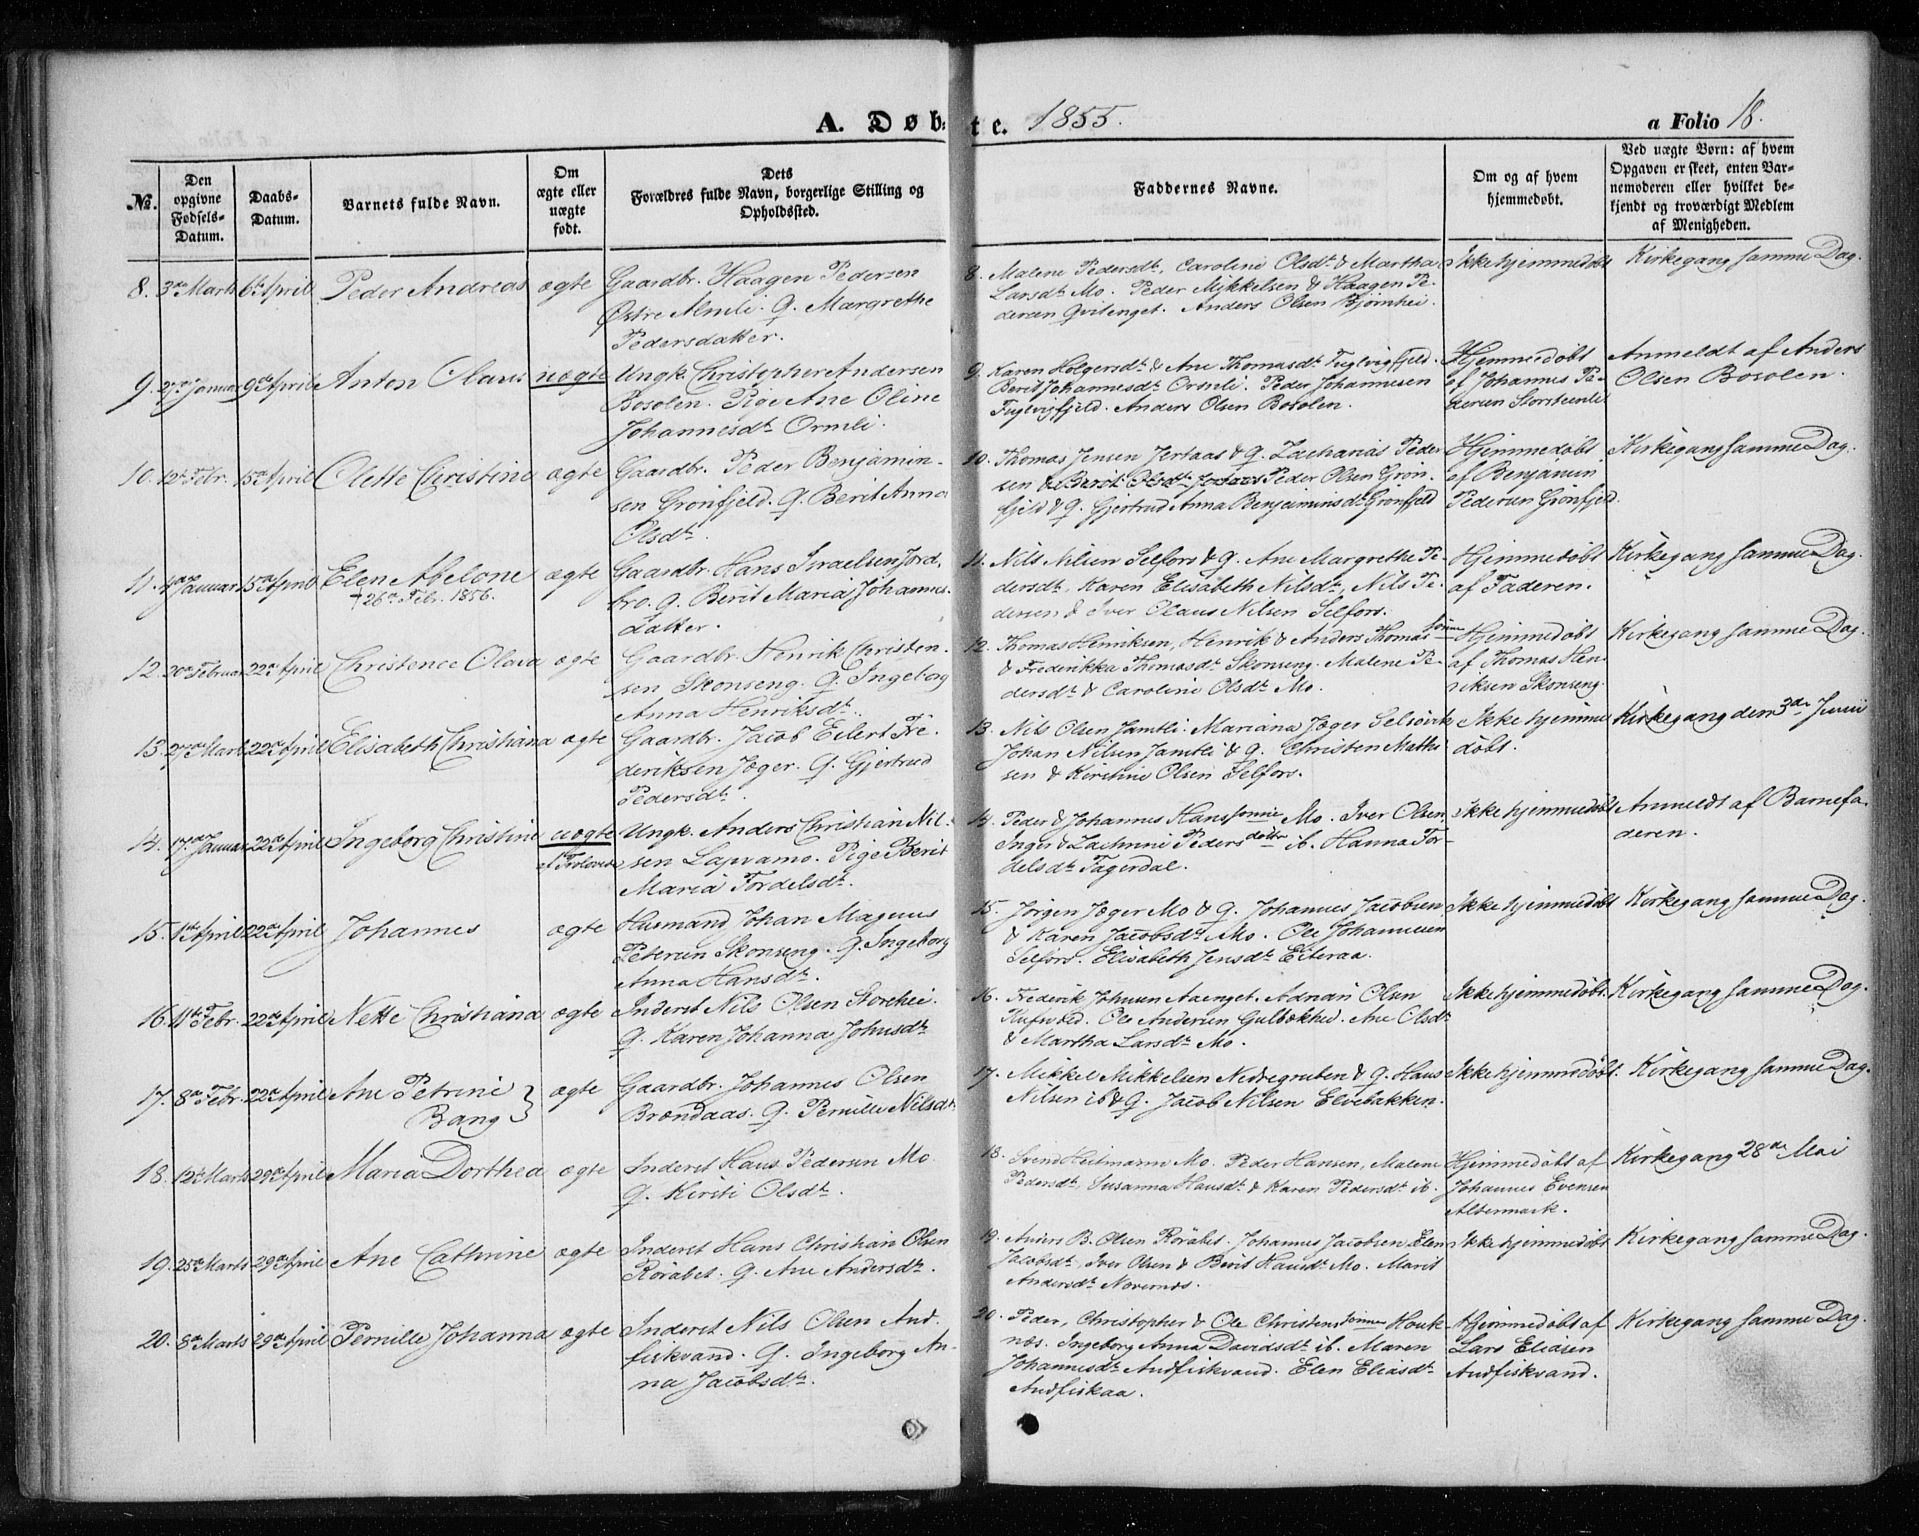 A. Døbte. 1855. a Folio 18.
No.
Den opgivne Fødsels-Datum.
Daabs-Datum.
Barnets fulde Navn.
Om ægte eller uægte født.
Dets Forældres fulde Navn, borgerlige Stilling og Opholdssted.
Faddernes Navne.
Om og af hvem hjemmedøbt.
Ved uægte Børn: af hvem Opgaven er skeet, enten Barnemoderen eller hvilket bekjendt og troværdigt Medlem af Menigheden.
8. 3de Marts 6te April Peder Andreas ægte Gaardbr. Haagen Pedersen
Østre Almli. Q. Margrethe
Pedersdatter.
8. Malene Pedersdt, Caroline Olsdt & Martha
Larsdt Mo. Peder Mikkelsen & Haagen Pe-
dersen Qvitenget. Anders Olsen Bjørnhei.
Ikke hjemmedøbt
Kirkegang samme Dag.
9. 27de Januar 9de April Anton Olaus uægte Ungk. Christopher Andersen
Bosolen. Pige Ane Oline
Johannesdt Ormli.
9. Karen Holgersdt & Ane Thomasdt Fuglvigfjeld.
Berit Johannesdt Ormli. Peder Johannesen
Fuglvigfjeld. Anders Olsen Bosolen.
Hjemmedøbt
af Johannes Pe-
dersen Storsteenli
Anmeldt af Anders
Olsen Bosolen.
10. 12te Febr. 15de April Olette Christine ægte Gaardbr. Peder Benjamin-
sen Grønfjeld. Q. Berit Anna
Olsdt.
10. Thomas Jensen Jertaas & Q. Zacharias Peder
sen & Berit Olsdt Peder Olsen Grøn-
fjeld & Q. Gjertrud Anna Benjaminsdt Grønfjeld
Hjemmedøbt
af Benjamin
Pedersen Grønfjeld.
Kirkegang samme Dag.
11. 4de Januar 15de April Elen Abelone ægte Gaardbr. Hans Israelsen Jord-
† 26de Febr. 1856.
bro. Q. Berit Maria Johannes-
datter.
11. Nils Nilsen Selfors & Q. Ane Margrethe Pe-
dersdt, Karen Elisabeth Nilsdt, Nils Pe-
dersen & Iver Olaus Nilsen Selfors.
Hjemmedøbt
af Faderen.
Kirkegang samme Dag.
12. 20de Februar 22de April Christence Olava ægte Gaardbr. Henrik Christen-
sen Skonseng. Q. Ingeborg
Anna Henriksdt.
12. Thomas Henriksen, Henrik & Anders Thomas sønner
& Frederikka Thomasdt Skonseng. Malene Pe-
dersdt & Caroline Olsdt Mo.
Hjemmedøbt
af Thomas Hen-
riksen Skonseng.
Kirkegang samme Dag.
13. 27de Marts 22de April Elisabeth Christiana ægte Gaardbr. Jacob Eilert Fre-
deriksen Jæger. Q. Gjertrud
Pedersdt.
13. Nils Olsen Jamtli. Mariana Jæger Selsøvik
Johan Nilsen Jamtli & Q. Christen Mathi
sen & Kirstine Olsen Selfors.
Ikke hjemme
døbt.
Kirkegang den 3de Juni
14. 17de Januar 22de April Ingeborg Christine uægte Ungk. Anders Christian Nil-
sen Lapvamo. Pige Berit
Maria Fordelsdt.
14. Peder & Johannes Hans sønner Mo. Iver Olsen
Inger & Zachrine Peders døttre ib. Hanna For-
delsdt Fagerdal.
ikke hjemmedøbt
Anmeldt af Barnefa-
deren.
15. 1ste April 22de April Johannes ægte Husmand Johan Magnus
Petersen Skonseng. Q. Ingeborg
Anna Hansdt.
15. Jørgen Jæger Mo & Q. Johannes Jacobsen
& Karen Jacobsdt Mo. Ole Johannesen
Selfors. Elisabeth Jensdt Eiteraa.
Ikke hjemmedøbt
Kirkegang samme Dag.
16. 11te Febr. 22de April Nette Christiana ægte Inderst Nils Olsen Storehei.
Q. Karen Johanna Johnsdt
16. Frederik Johnsen Aaenget. Adrian Olsen
Ole Andersen Gulbækhei. Ane Olsdt
& Martha Larsdt Mo.
Ikke hjemmedøbt.
Kirkegang samme Dag.
17. 8de Febr. 22de April Ane Petrine
Bang } ægte Gaardbr. Johannes Olsen
Brændaas. Q. Pernille Nilsdt.
17. Mikkel Mikkelsen Nedregruben & Q. Hans
Nilsen ib & Q. Jacob Nilsen Elvebakken.
Ikke hjemmedøbt.
Kirkegang samme Dag.
18. 12te Marts 29de April Maria Dorthea ægte Inderst Hans Pedersen Mo.
Q. Kirsti Olsdt.
18. Svend Heitmann Mo. Peder Hansen, Malene
Pedersdt, Susanna Hansdt & Karen Pedersdt ib.
Hjemmedøbt af
Johannes Evensen
Altermark.
Kirkegang 28de Mai
19. 25de Marts 29de April Ane Cathrine ægte Inderst Hans Christian Olsen
Rørabet. Q. Ane Andersdt.
19. Anders B. Olsen Rørabet. Johannes Jacobsen Elen
Jacobsdt, Iver Olsen & Berit Hansdt Mo. Marit
Andersdt Nævernæs.
Ikke hjemmedøbt
Kirkegang samme Dag.
20. 8de Marts 29de April Pernille Johanna ægte Inderst Nils Olsen And-
fiskvand. Q. Ingeborg An-
na Jacobsdt.
20. Peder, Christopher & Ole Christens sønner Hauk-
næs. Ingeborg Anna Davidsdt ib. Maren
Johannesdt Andfiskvand. Elen Eliasdt
Andfiskaa.
Hjemmedøbt af
Lars Eliasen
Andfiskvand.
Kirkegang samme Dag.